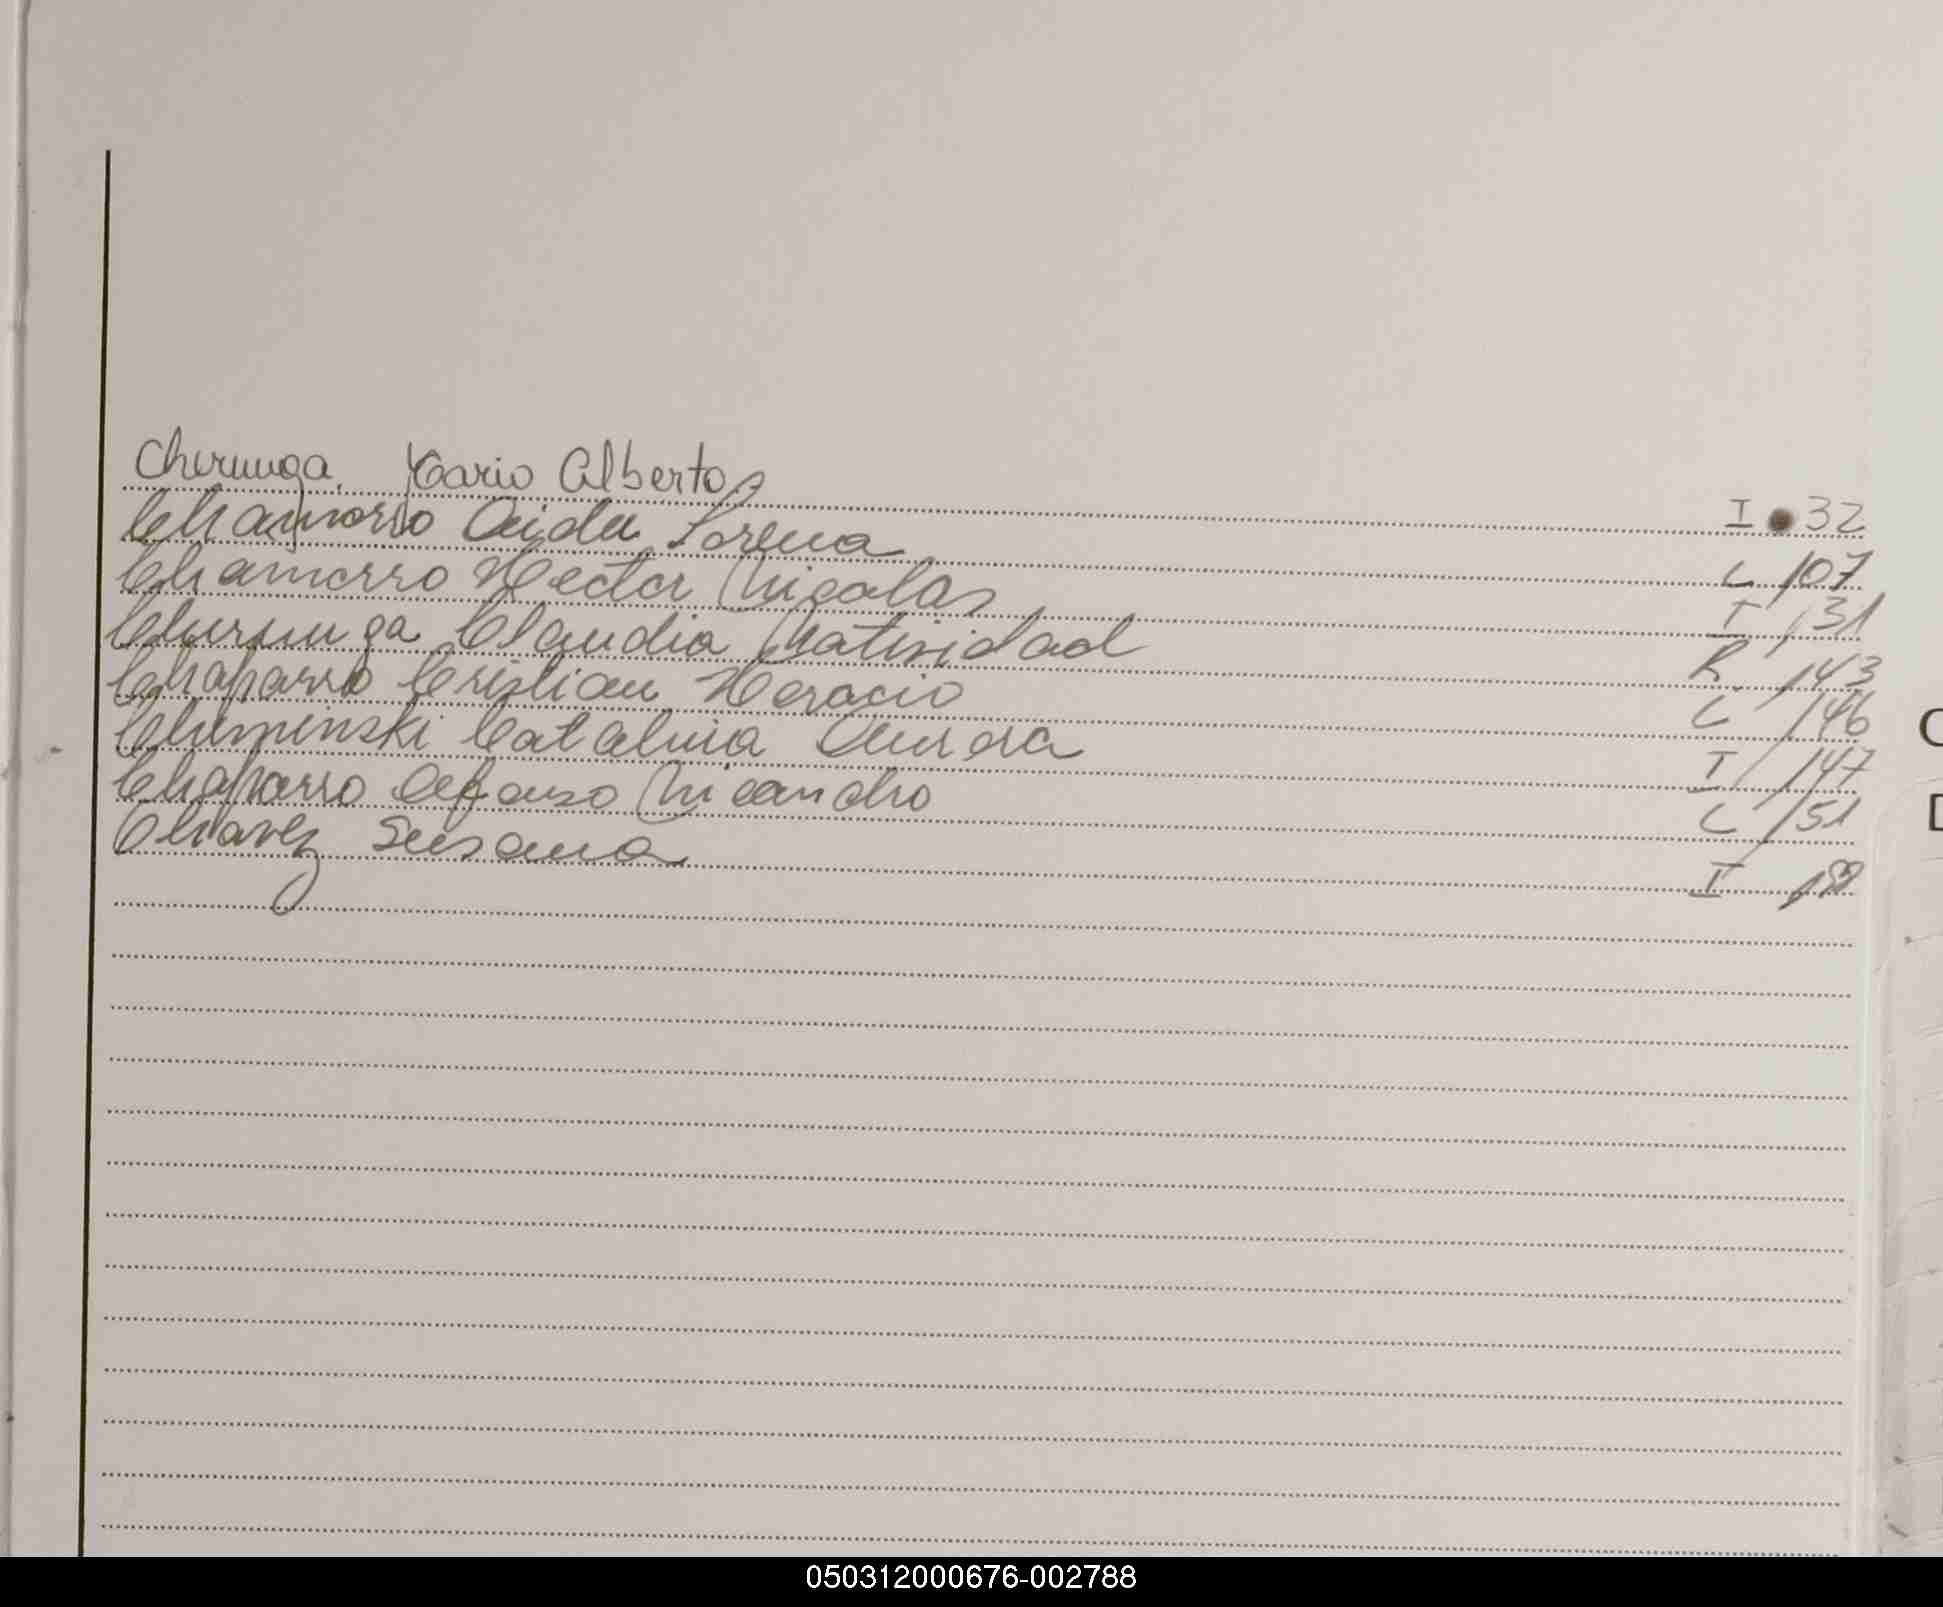 Cherunga. Mario Alberto I 32
Chamorro Aida Lorena L 107
Chamorro Hector Nicolas I 131
Cherunga Claudia Natividad R 143
Chaparro Cristian Horacio L 146
Cheminski Catalina Aurora I 147
Chaparro Alfonso Nicandro L 151
Chavez Susana I
C
D
050312000676-002788